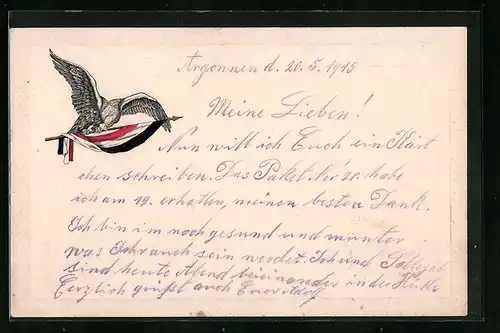 Argonnen d. 20.5.1915
Meine Lieben!
Nun will ich Euch ein Kärt
chen schreiben. Das Paket Nr. 20. habe
ich am 19. erhalten, meinen besten Dank.
Ich bin im noch gesund und munter
was Ihr auch sein werdet. Ich und
sind heute Abend beieinander in der Hütte
Herzlich grüßt euch Euer Adolf